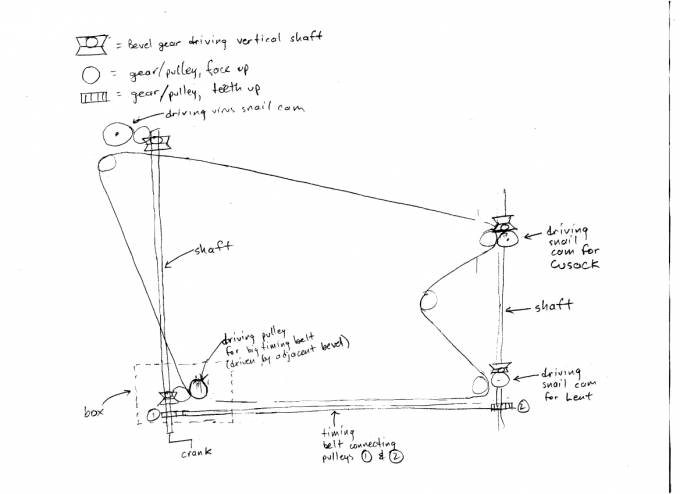 = Bevel gear driving vertical shaft
= gear/pulley, face up
= gear/pulley, teeth up
driving virus snail cam
shaft
driving
snail
cam for
CUSACK
shaft
driving pulley
for big timing belt
(driven by adjacent bevel)
box
driving
snail cam
for Lent
1
2
crank
timing
belt connecting
pulleys 1 & 2